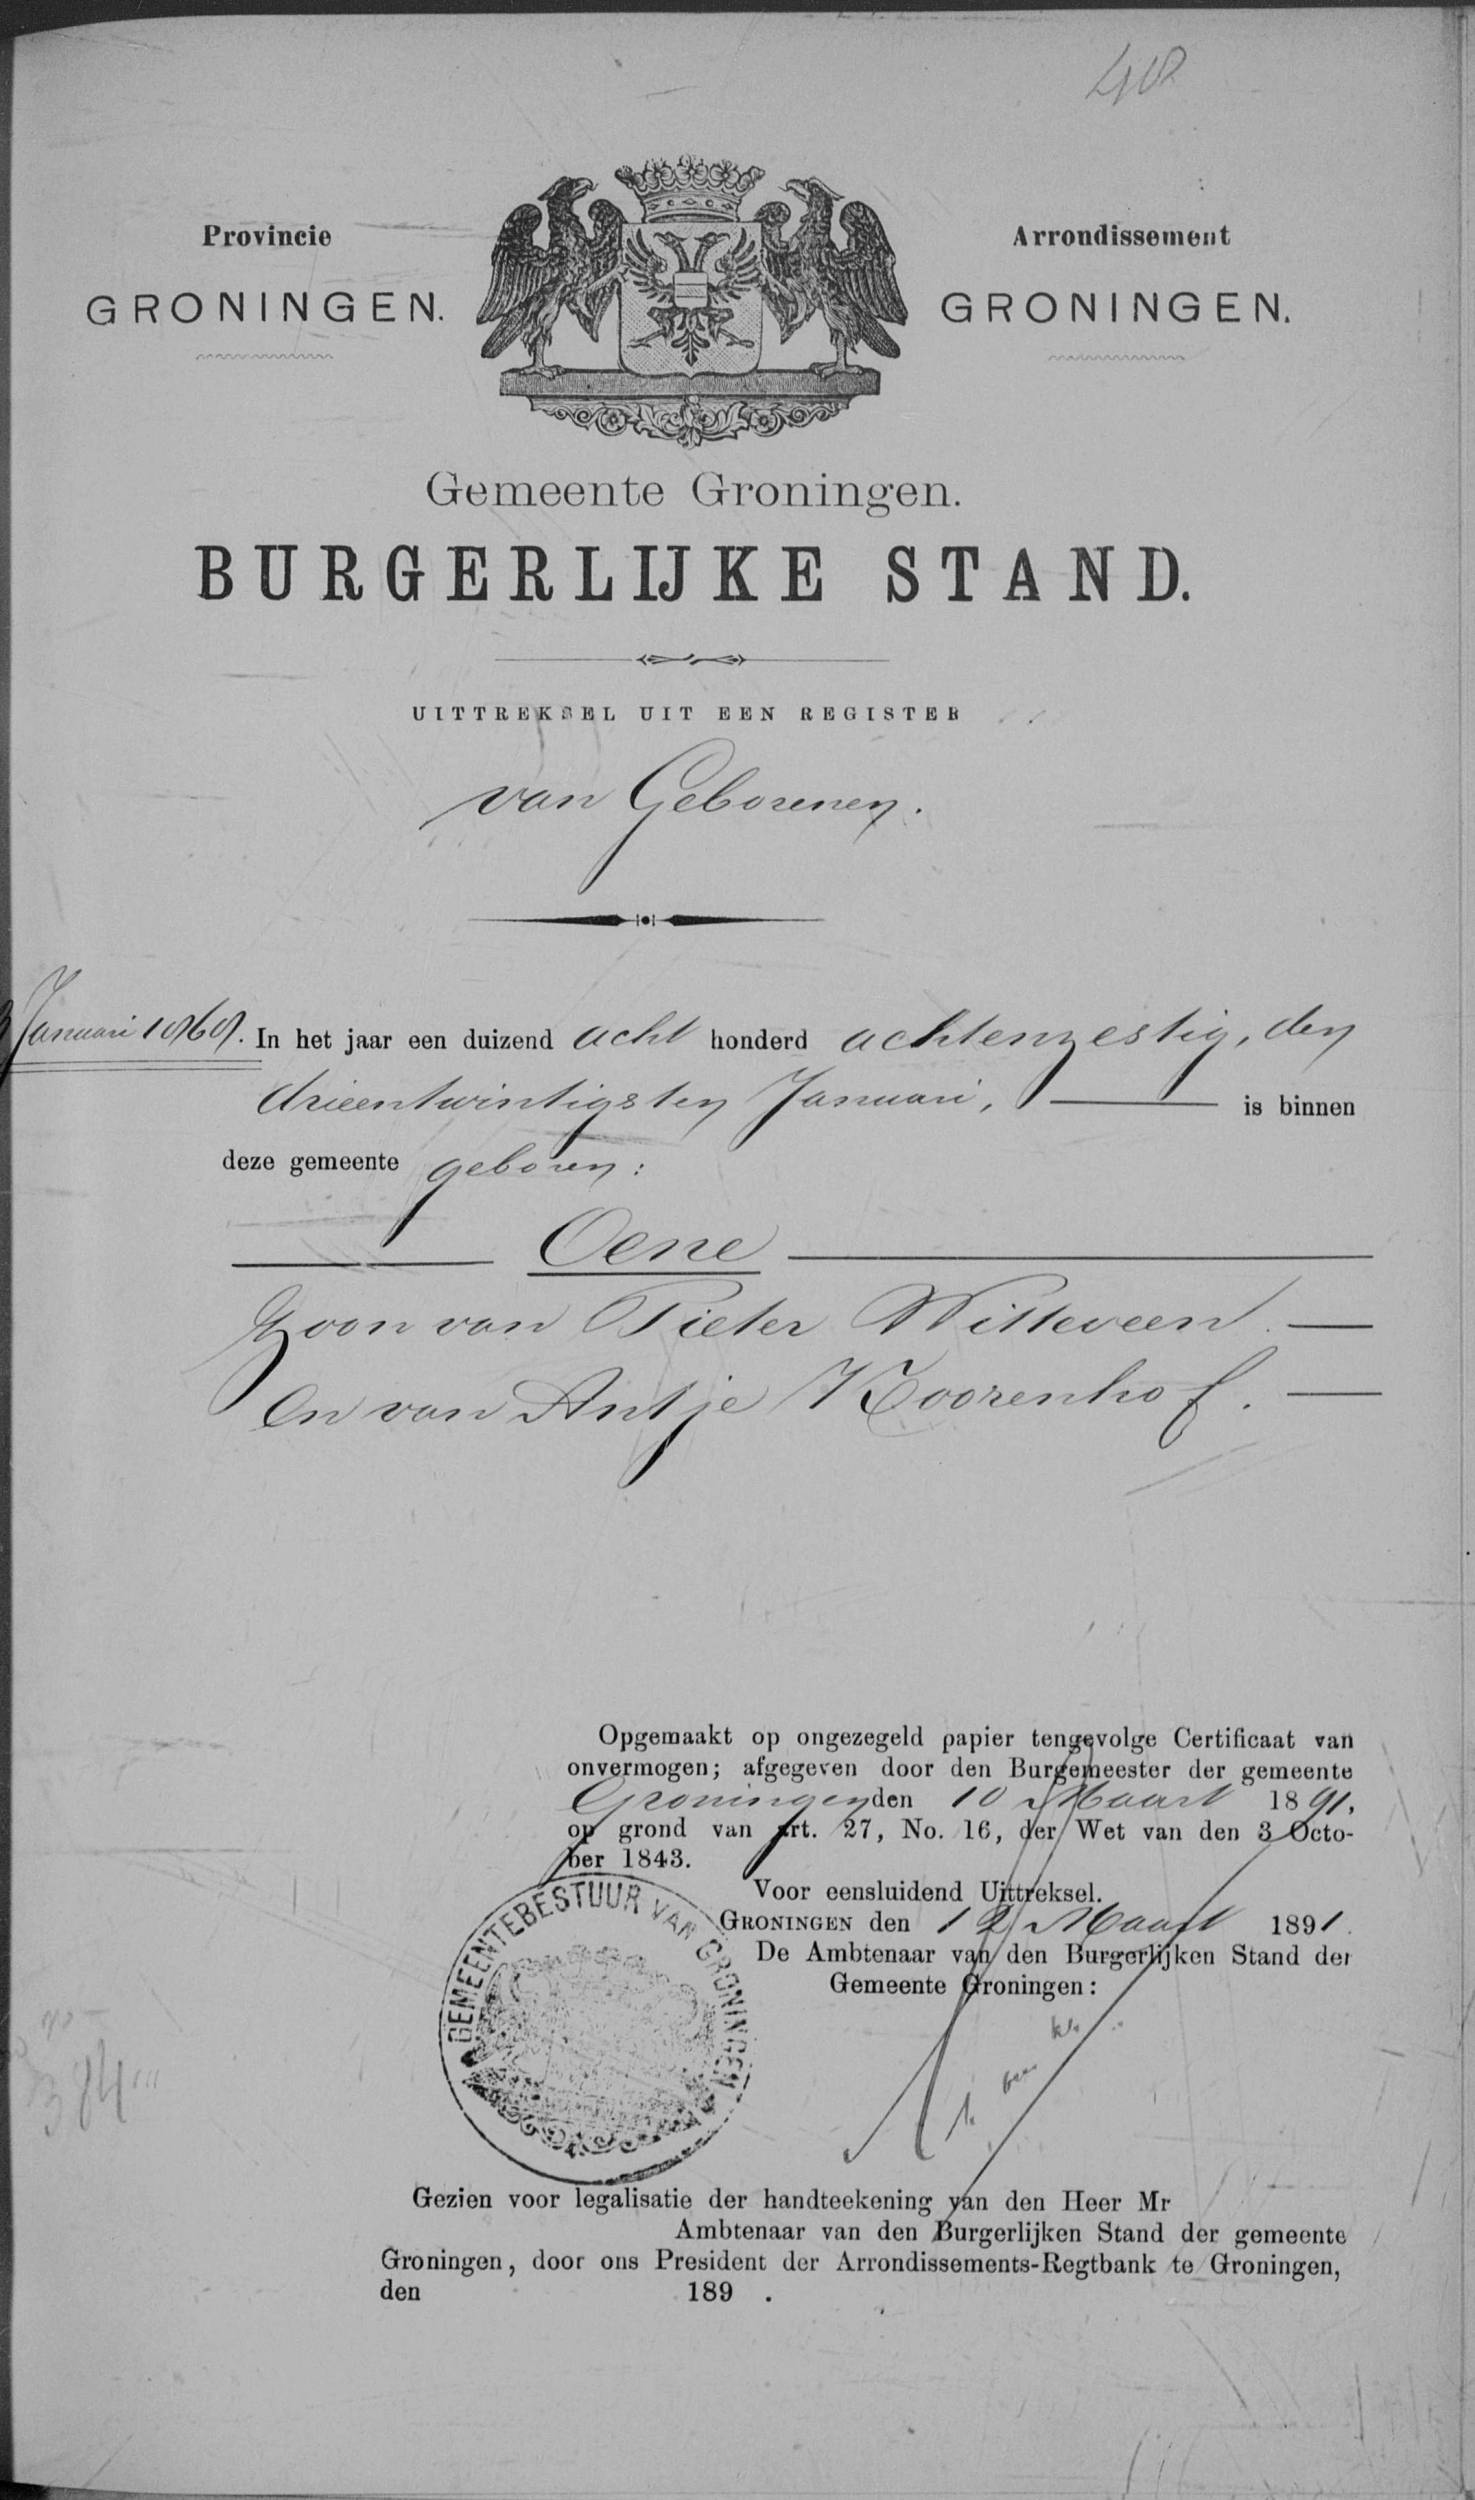 48
Provincie
GRONINGEN.
Arrondissement
GRONINGEN.
Gemeente Groningen.
BURGERLIJKE STAND.
UITTREKSEL UIT EEN REGISTER
van Geborenen.
3 Januari 1868. In het jaar een duizend acht honderd achtenzestig, den
drieentwintigsten Januari, is binnen
deze gemeente geboren:
Oene
Zoon van Pieter Witteveen
En van Antje Koorenhof.
Opgemaakt op ongezegeld papier tengevolge Certificaat van
onvermogen; afgegeven door den Burgemeester der gemeente
Groningen den 10 Maart 1891,
op grond van art. 27, No. 16, der Wet van den 3 Octo-
ber 1843.
Voor eensluidend Uittreksel.
GRONINGEN den 12 Maart 1891.
De Ambtenaar van den Burgerlijken Stand der
Gemeente Groningen:
GEMEENTEBESTUUR VAN GRONINGEN
384
Gezien voor legalisatie der handteekening van den Heer Mr
Ambtenaar van den Burgerlijken Stand der gemeente
Groningen, door ons President der Arrondissements-Regtbank te Groningen,
den 189 .